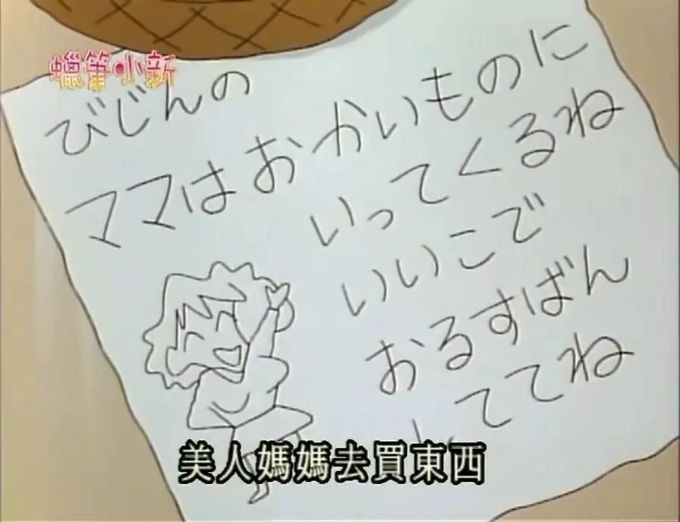 蠟筆小新
びじんの
ママはおかいものに
いってくるね
いいこで
おるすばん
しててね
美人媽媽去買東西